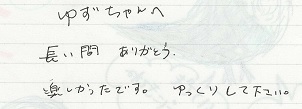 ゆずちゃんへ
長い間 ありがとう.
楽しかったです。 ゆっくりして下さい。